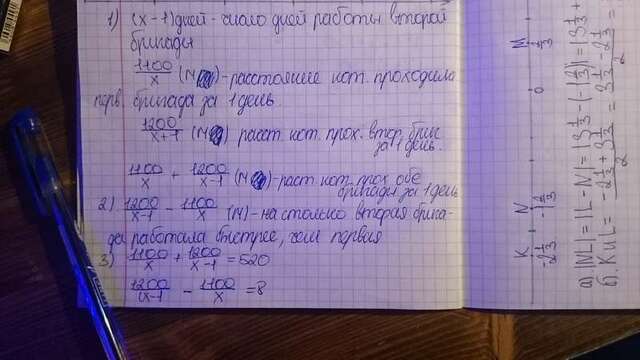 1) (x-1) дней - число дней работы второй
бригады
1100/x (м) - расстояние кот. проходила
перв бригада за 1 день.
1200/x-1 (м) расст кот. прох втор. бриг
за 1 день.
1100/x + 1200/x-1 (м) - раст кот. прох обе
бригады за 1 день
2) 1200/x-1 - 1100/x (м) - на столько вторая брига-
да работала быстрее, чем первая
3) 1100/x + 1200/x-1 = 520
1200/x-1 - 1100/x = 8
K N M
-2 1/3 -1 2/3 0
а) |NL| = |L - N| = |3 1/3 - (-1 2/3)| = |3 1/3 +
б. K и L = -2 1/3 + 3 1/3 / 2 = 3 1/3 - 2 1/3 / 2 =